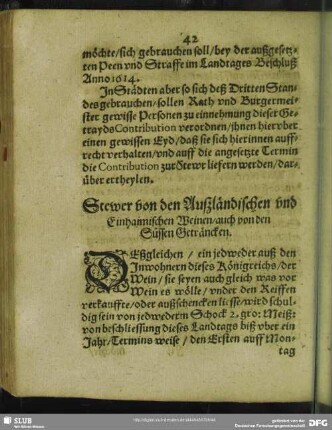 42
möchte/sich gebrauchen soll/bey der außgesetz-
ten Peen vnd Straffe im Landtages Beschluß
Anno 1614.
In Städten aber so sich deß Dritten Stan-
des gebrauchen/sollen Rath vnd Burgermei-
ster gewisse Personen zu einnehmung dieser Ge-
trayds Contribution verordnen/jhnen hierüber
einen gewissen Eyd/daß sie sich hierinnen auff-
recht verhalten/vnd auff die angesetzte Termin
die Contribution zur Stewr liefern werden/dar-
über ertheylen.
Stewer von den Außländischen vnd
Einhaimischen Weinen/auch von den
Süssen Geträncken.
DEßgleichen / ein jedweder auß den
Inwohnern dieses Königreichs/der
Wein/sie seyen auch gleich was vor
Wein es wölle/vnder den Reiffen
verkauffte/oder außschencken liesse/wird schul-
dig sein von jedwederm Schock 2. gro: Meiß:
von beschliessung dieses Landtags biß vber ein
Jahr/Termins weise / den Ersten auff Mon-
tag
SLUB
Wir führen Wissen.
gefördert von der
Deutschen Forschungsgemeinschaft
DFG